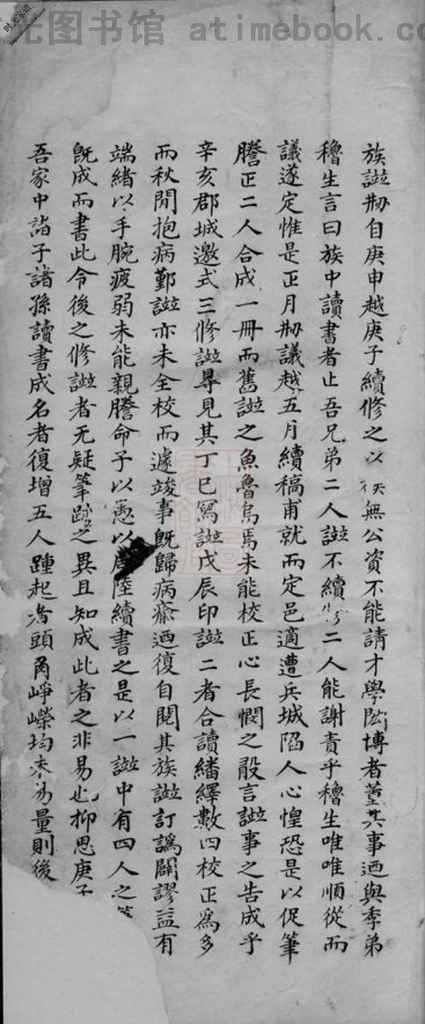 无图书馆 atimebook.c
族譜剏自庚申越庚子續修之以 無公資不能請才學閎博者董其事迺與季弟
穭生言曰族中讀書者止吾兄弟二人譜不續修二人能謝責乎穭生唯唯順從而
議遂定惟是正月剏議越五月續稿甫就而定邑適遭兵城陷人心惶恐是以促筆
謄正二人合成一冊而舊譜之魚魯烏焉未能校正心長憫之殷言譜事之告成乎
辛亥郡城邀式三修譜尋見其丁巳寫譜戊辰印譜二者合讀繙繹數四校正為多
而秋閒抱病鄞譜亦未全校而遽竣事旣歸病瘉迺復自閱其族譜訂譌闢謬益有
端緒以手腕疲弱未能親謄命子以愚以 陸續書之是以一譜中有四人之筆
旣成而書此令後之修譜者无疑筆跡之異且知成此者之非易也抑思庚子
吾家中詣子諸孫讀書成名者復增五人踵起 頭角崢嶸均未易量則後